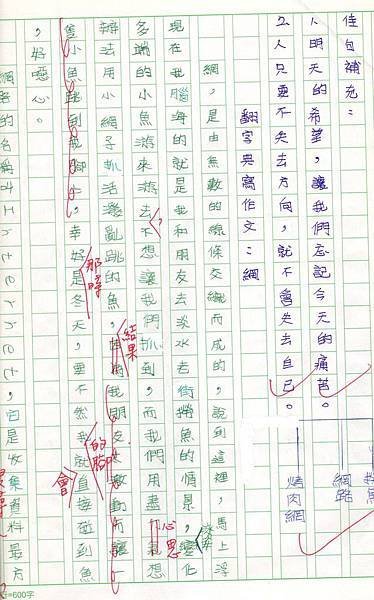 佳句補充：
1.明天的希望，讓我們忘記今天的痛苦。
2.人只要不失去方向，就不會失去自己。
撈魚
網路
烤肉網
翻字典寫作文：網
網，是由無數的線條交織而成的，說到這裡，馬上浮
現在我腦海的就是我和朋友去淡水老街撈魚的情景，變化
多端的小小魚游來游去，不想讓我們抓到，而我們用盡想
心思
辦法用小網子抓活潑亂跳的魚，我朋友激動而讓
結果
隻小魚跳到我腳上，幸好是冬天，要不然我就直接碰到魚
那時
的腳
會
，好噁心。
網路的名稱叫Internet，它是收集資料最方
=600字